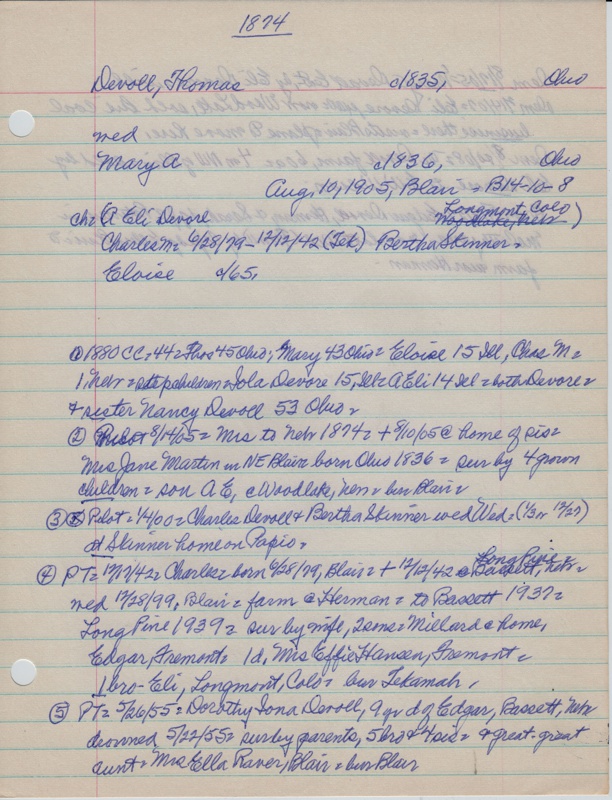 1874
Devoll, Thomas c1835, Ohio
wed
Mary A c1836, Ohio
Aug, 10, 1905, Blair = B14-10-8
Longmont, Colo
ch= (A Eli Devore Woodlake, Nebr)
Charles M= 6/28/79-12/12/42 (Tek) Bertha Skinner=
Eloise c/65,
① 1880 CC=44= Thos 45 Ohio; Mary 43 Ohio= Eloise 15 Ill, Chas M=
1, Nebr= stepchildren= Iola Devore 15, Ill= A Eli 14 Ill= both Devore=
& sister Nancy Devoll 53 Ohio=
② Pilot 8/14/05= Mrs to Nebr 1874= + 8/10/05 @ home of sis=
Mrs Jane Martin in NE Blair= born Ohio 1836= sur by 4 grown
children= son A E, @ Woodlake, Nebr= bur Blair=
③ Pilot= 1/4/00= Charles Devoll & Bertha Skinner wed Wed= (1/3 or 12/27)
at Skinner home on Papio=
④ PT= 12/17/42= Charles= born 6/28/79, Blair= + 12/12/42 @ Bassett, Long Pine= Nebr=
wed 12/28/99, Blair= farm @ Herman= to Bassett 1937=
Long Pine 1939= sur by wife, 2 sons= Millard @ home,
Edgar, Fremont= 1 d, Mrs Effie Hansen, Fremont=
1 bro-Eli, Longmont, Colo= bur Tekamah,
⑤ PT= 5/26/55= Dorothy Iona Devoll, 9 yr d of Edgar, Bassett, Nebr
drowned 5/22/55= sur by parents, 5 bro & 4 sis= & great-great
aunt= Mrs Ella Raver, Blair= bur Blair